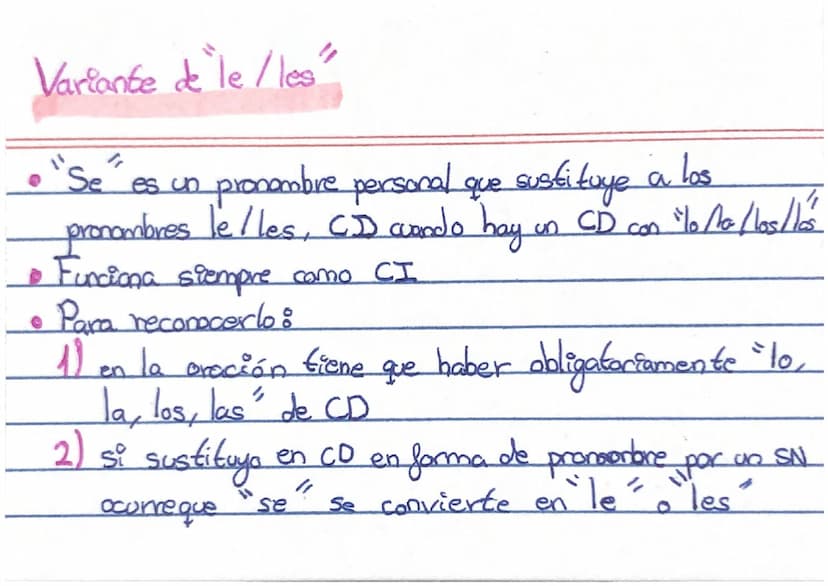 Variante de "le/les"
• "Se" es un pronombre personal que sustituye a los
pronombres le/les, CD cuando hay un CD con "lo/la/los/las"
• Funciona siempre como CI
• Para reconocerlo:
1) en la oración tiene que haber obligatoriamente "lo,
la, los, las" de CD
2) si sustituyo en CD en forma de pronombre por un SN
ocurre que "se" se convierte en "le" o "les"